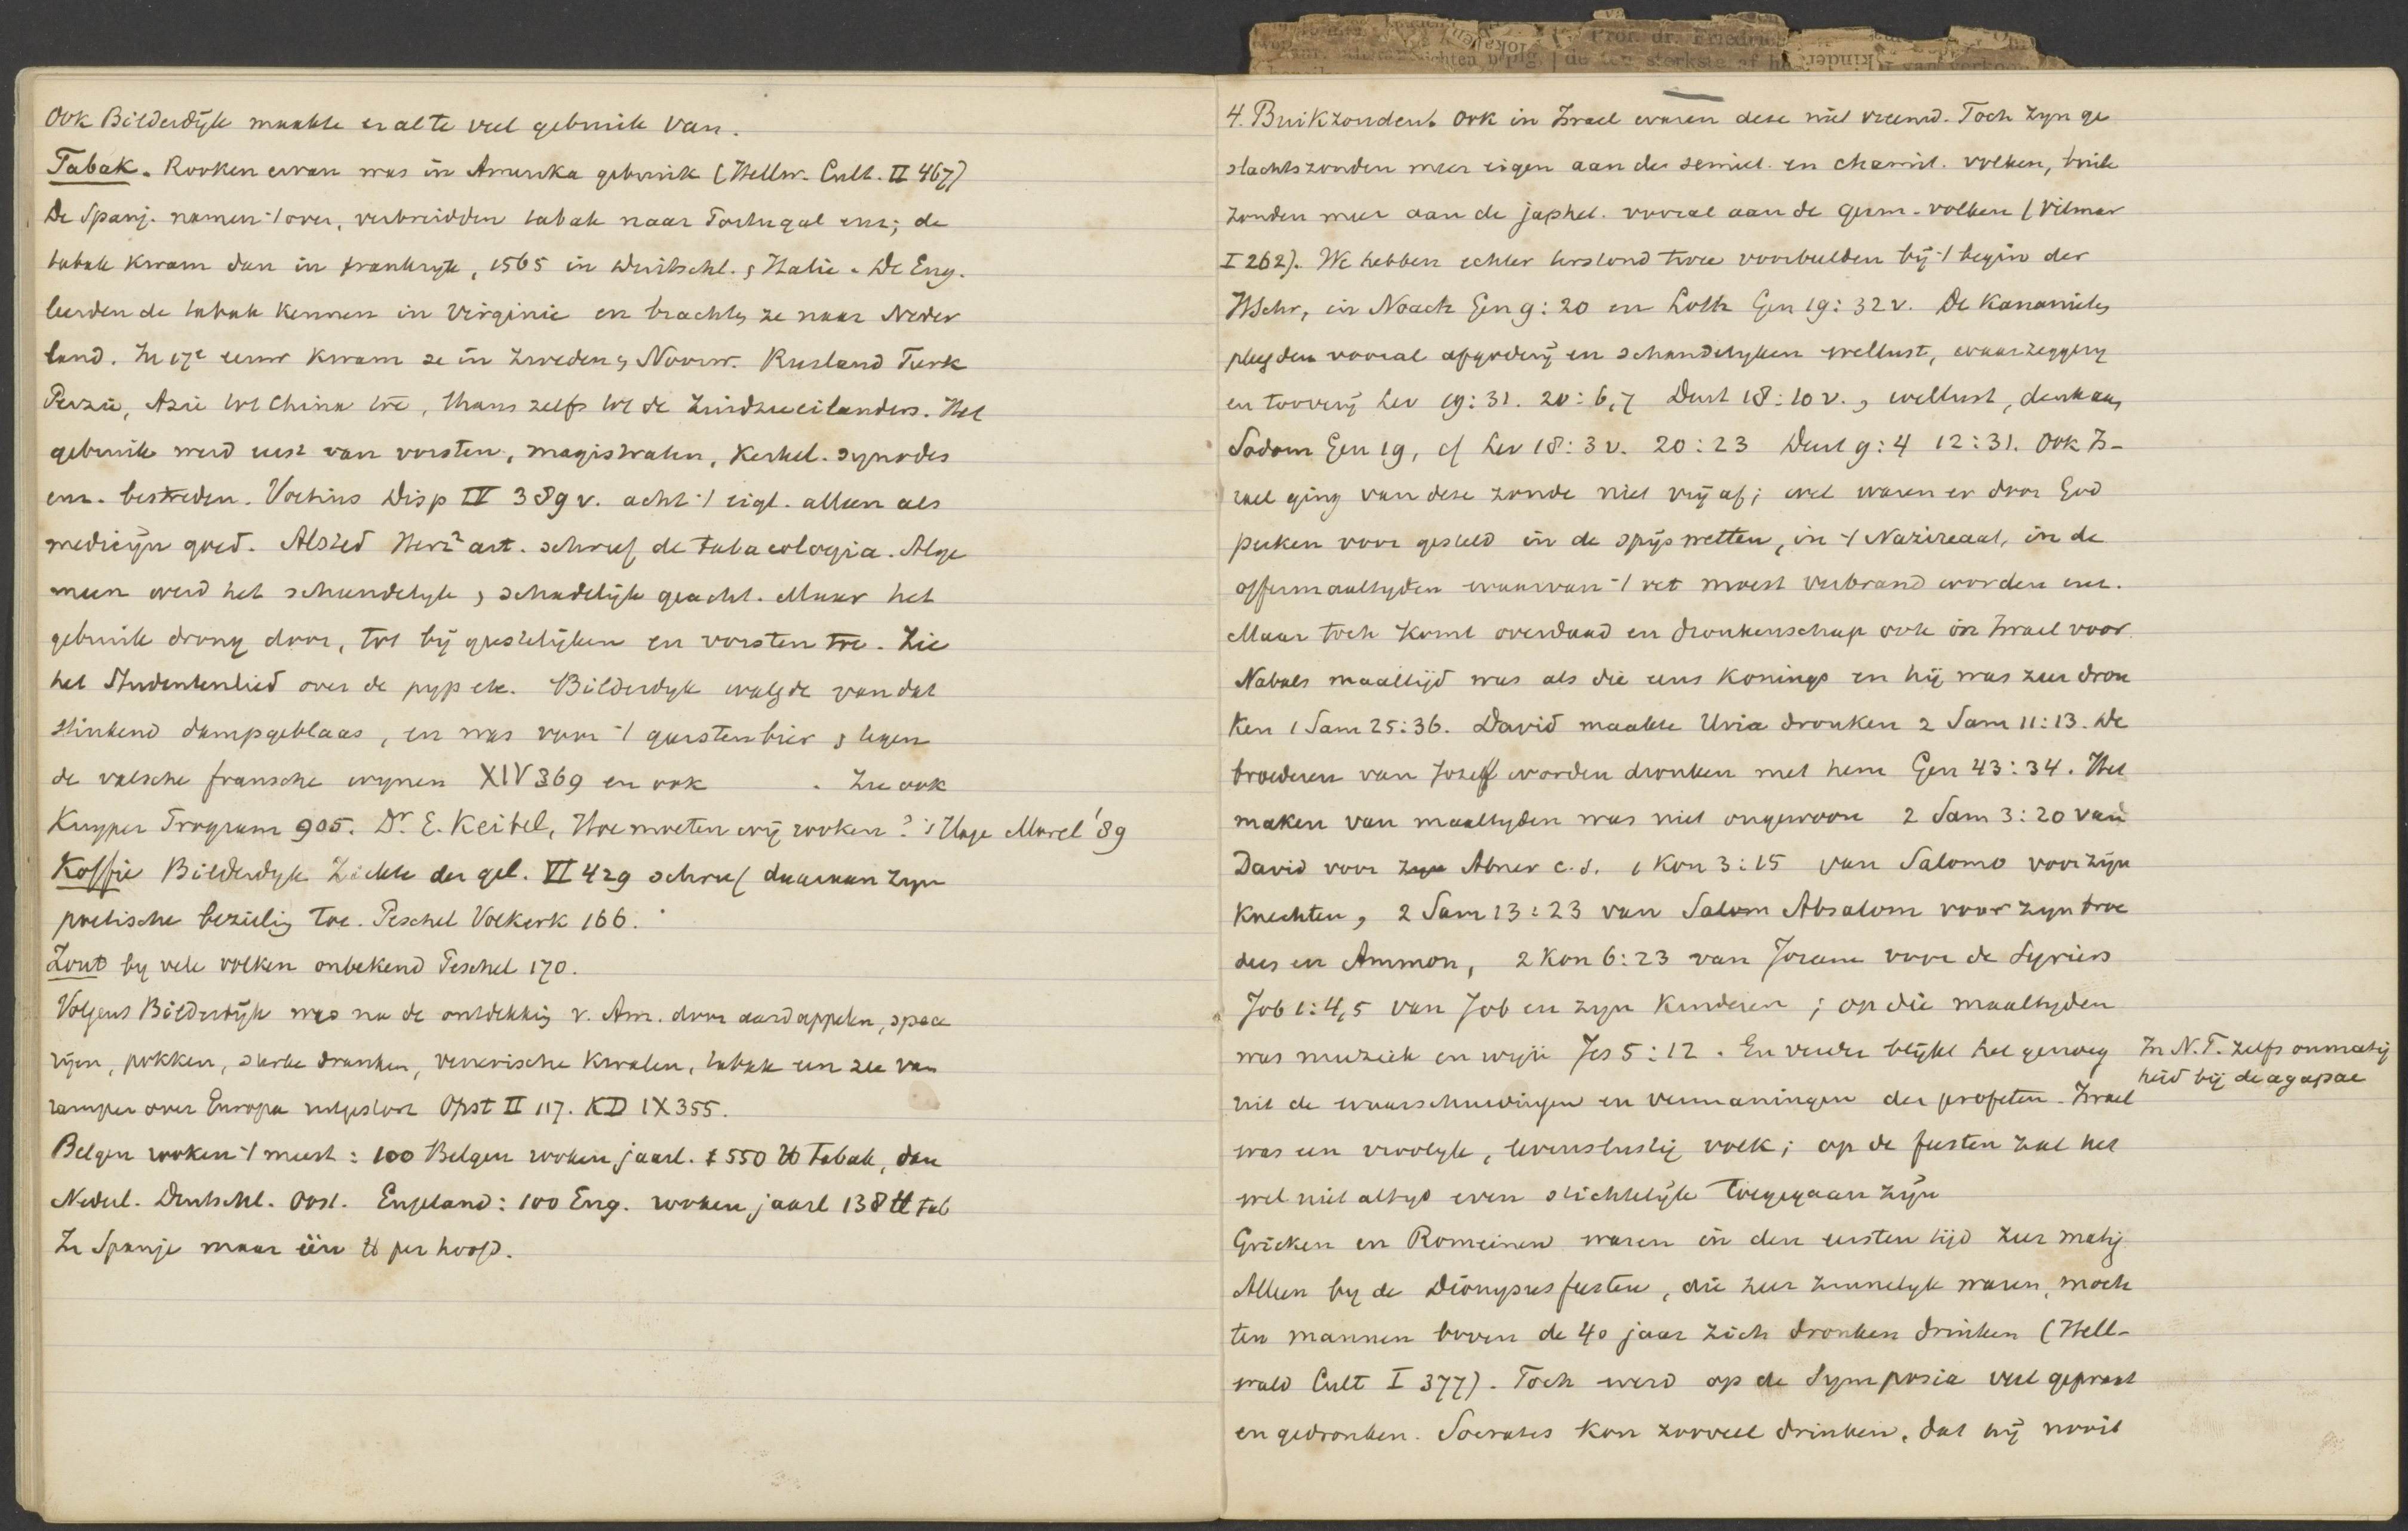 Ook Bilderdijk maakte er al te veel gebruik van.
Tabak. Rooken ervan was in Amerika gebruik (Hellw. Cult. II 467)
De Spanj. namen 't over, verbreidden tabak naar Portugal enz; de
tabak kwam dan in Frankryk, 1565 in Duitschl. , Italie. De Eng.
leerden de tabak kennen in Virginie en brachtn ze naar Neder
land. In 17e eeuw kwam ze in Zweden, Noorw. Rusland Turk
Perzië, Azie tot China toe, thans zelfs tot de Zuidzeeeilanders. Het
gebruik werd eerst van vorsten, magistraten, Kerkel. synodes
enz. bestreden. Voetius Disp IV 389 v. acht 't eigl. alleen als
medicijn goed. Alsted art. schreef de tabacologia. Alge
meen werd het schandelyk , schadelijk geacht. Maar het
gebruik drong door, tot bij geestelijken en vorsten toe. Zie
het Studentenlied over de pyp etc. Bilderdyk walgde van dat
stinkend dampgeblaas, en was voor 't gerstenbier , tegen
de valsche fransche wynen XIV 369 en ook . Zie ook
Kuyper Program 905. Dr. E. Keibel, Hoe moeten wij rooken? 's Hage Morel '89
Koffie Bilderdyk Ziekte der gel. VI 429 schreef daaraan zyn
poetische bezielig toe. Peschel Volkerk 166.
Zout by vele volken onbekend Peschel 170.
Volgens Bilderdijk was na de ontdekkig v. Am. door aardappelen, spece
rijen, pokken, sterke dranken, venerische kwalen, tabak een zee van
rampen over Europa uitgestort Opst II 117. KD IX 355.
Belgen rooken 't meest: 100 Belgen rooken jaarl. ± 550 ℔ Tabak, dan
Nederl. Deutschl. Oost. Engeland: 100 Eng. rooken jaarl 138 ℔ tab
In Spanje maar één ℔ per hoofd.
4. Buikzonden. Ook in Israel waren deze niet vreemd. Toch zyn ge
slachtszonden meer eigen aan de semiet. en chamit. volken, buik
zonden meer aan de japhet. vooral aan de germ. volken (Vilmar
I 262). We hebben echter terstond twee voorbeelden bij 't begin der
HSchr, in Noach Gen 9:20 en Loth Gen 19:32 v. De Kanaanietn
pleegden vooral afgoderij en schandelyken wellust, waarzeggery
en toovery Lev 19:31. 20:6,7 Deut 18:10 v. , wellust, denk aan
Sodom Gen 19, cf Lev 18:3 v. 20:23 Deut 9:4 12:31. Ook Is-
rael ging van deze zonde niet vrij af; wel waren er door God
perken voor gesteld in de spijswetten, in 't Nazireaat, in de
offermaaltyden waarvan 't vet moest verbrand worden enz.
Maar toch komt overdaad en dronkenschap ook in Israel voor.
Nabals maaltijd was als die eens konings en hij was zeer dron
ken 1 Sam 25:36. David maakte Uria dronken 2 Sam 11:13. De
broederen van Jozef worden dronken met hem Gen 43:34. Het
maken van maaltyden was niet ongewoon 2 Sam 3:20 van
David voor zyn Abner c.s. 1 Kon 3:15 van Salomo voor zijn
knechten, 2 Sam 13:23 van Salom Absalom voor zyn broe
ders en Ammon, 2 Kon 6:23 van Joram voor de Syriers
Job 1:4,5 van Job en zyn kinderen ; op die maaltyden
was muziek en wijn Jes 5:12. En verder blijkt het genoeg
uit de waarschuwingen en vermaningen der profeten. Israel
was een vroolyk, levenslustig volk; op de feesten zal het
wel niet altyd even stichtelijk toegegaan zijn
In N.T. zelfs onmatig
heid bij de agapae
Grieken en Romeinen waren in den eersten tijd zeer matig
Alleen by de Dionysusfeesten, die zeer zinnelyk waren, moch
ten mannen boven de 40 jaar zich dronken drinken (Hell-
wald Cult I 377). Toch werd op de Symposia veel gepraat
en gedronken. Socrates kon zooveel drinken, dat hij nooit